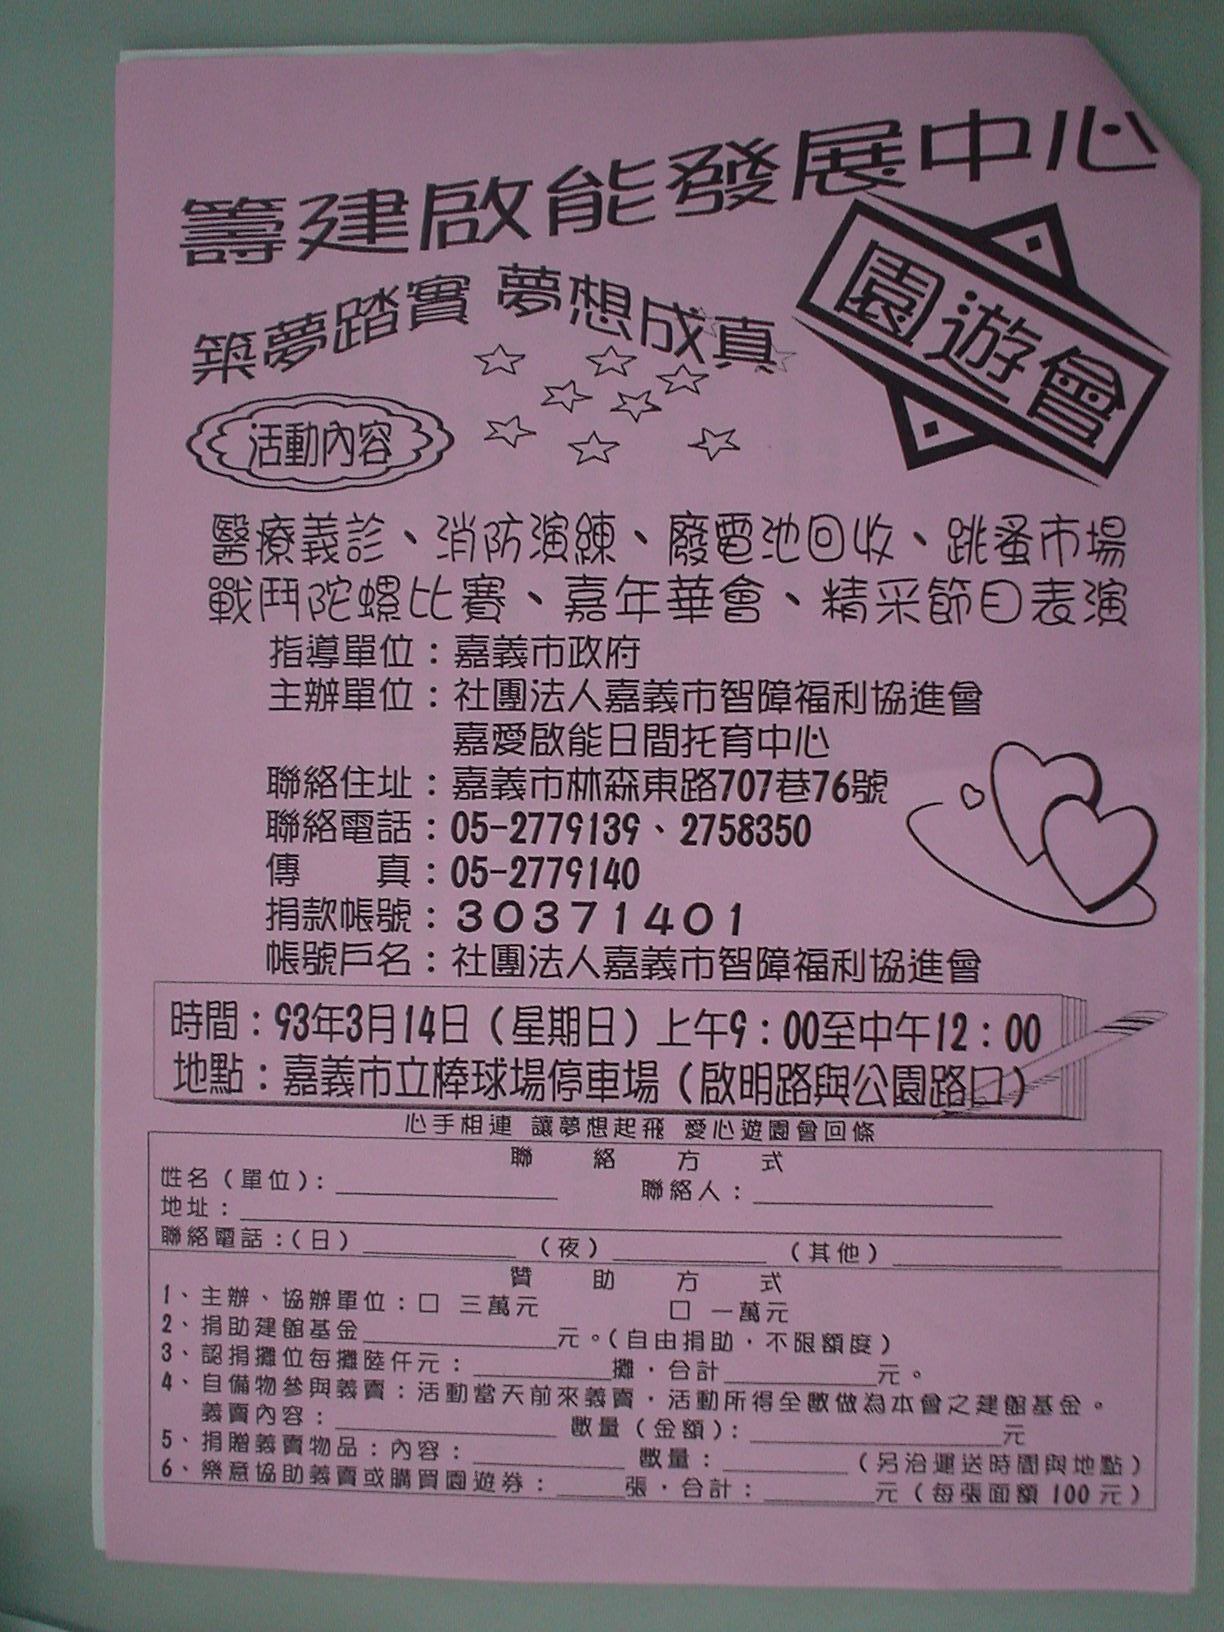 籌建啟能發展中心
築夢踏實 夢想成真
園遊會
活動內容
醫療義診、消防演練、廢電池回收、跳蚤市場
戰鬥陀螺比賽、嘉年華會、精采節目表演
指導單位：嘉義市政府
主辦單位：社團法人嘉義市智障福利協進會
嘉愛啟能日間托育中心
聯絡住址：嘉義市林森東路707巷76號
聯絡電話：05-2779139、2758350
傳　　真：05-2779140
捐款帳號：30371401
帳號戶名：社團法人嘉義市智障福利協進會
時間：93年3月14日（星期日）上午9：00至中午12：00
地點：嘉義市立棒球場停車場（啟明路與公園路口）
心手相連 讓夢想起飛 愛心遊園會回條
聯　絡　方　式
姓名（單位）：____________ 聯絡人：____________
地址：____________
聯絡電話：（日）________（夜）________（其他）________
贊　助　方　式
1、主辦、協辦單位：□ 三萬元 □ 一萬元
2、捐助建館基金____________元。（自由捐助，不限額度）
3、認捐攤位每攤陸仟元：________攤，合計________元。
4、自備物參與義賣：活動當天前來義賣，活動所得全數做為本會之建館基金。
義賣內容：____________ 數量（金額）：____________元
5、捐贈義賣物品：內容：________ 數量：________（另洽運送時間與地點）
6、樂意協助義賣或購買園遊券：____張，合計：______元（每張面額 100 元）